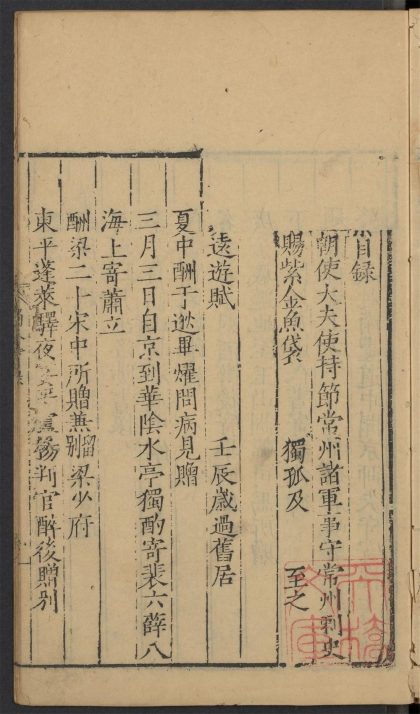 目録
朝使大夫使持節常州諸軍事守常州刺史
賜紫金魚袋 獨孤及 至之
遠遊賦 壬辰歲過舊居
夏中酬于逖畢燿問病見贈
三月三日自京到華陰水亭獨酌寄裴六薛八
海上寄蕭立
酬梁二十宋中所贈兼留別梁少府
東平蓬萊驛夜宴平盧 判官醉後贈別